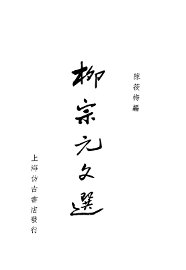 陳筱梅編
柳宗元文選
上海仿古書店發行